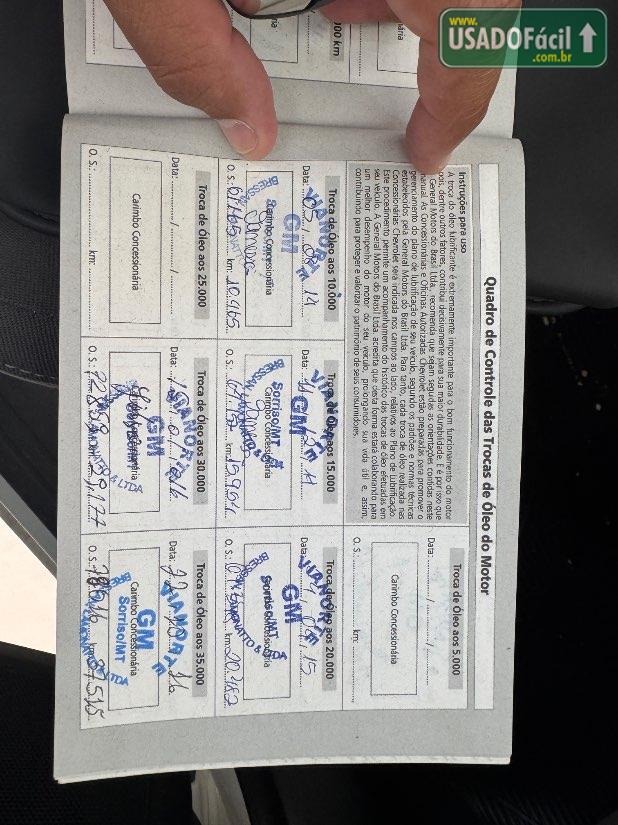 www.
USADOFácil
.com.br
000 km
Quadro de Controle das Trocas de Óleo do Motor
Instruções para uso
A troca do óleo lubrificante é extremamente importante para o bom funcionamento do motor
pois, dentre outros fatores, contribui decisivamente para sua maior durabilidade. E é por isso que
General Motors do Brasil Ltda. recomenda que sejam seguidas as orientações contidas neste
manual. As Concessionárias e Oficinas Autorizadas Chevrolet estão preparadas para promover o
gerenciamento do plano de lubrificação de seu veículo, segundo os padrões e normas técnicas
estabelecidos pela General Motors do Brasil Ltda. Para tanto, cada troca de óleo realizada nas
Concessionárias Chevrolet será indicada nos campos ao lado, relativos ao Plano de Lubrificação.
Este procedimento permite um acompanhamento do histórico das trocas de óleo efetuadas em
seu veículo. A General Motors do Brasil Ltda. acredita que desta forma estará colaborando para
um melhor desempenho do motor do seu veículo, prolongando sua vida útil e, assim,
contribuindo para proteger e valorizar o patrimônio de seus consumidores.
Troca de Óleo aos 5.000
Data:
Carimbo Concessionária
O. S.: km:
Troca de Óleo aos 10.000
Data: 14
VIANORTE
GM
Carimbo Concessionária
O. S.: km: 10.465
Troca de Óleo aos 15.000
Data:
GM
Sorriso/MT
Carimbo Concessionária
O. S.: km:
Troca de Óleo aos 20.000
Data: 15
VIANORTE
GM
Sorriso/MT
Carimbo Concessionária
O. S.: km: 20.482
Troca de Óleo aos 25.000
Data:
Carimbo Concessionária
O. S.: km:
Troca de Óleo aos 30.000
Data:
VIANORTE
GM
Carimbo Concessionária
& LTDA
O. S.:
Troca de Óleo aos 35.000
Data: 16
VIANORTE
GM
Carimbo Concessionária
Sorriso/MT
O. S.: km: 37.515